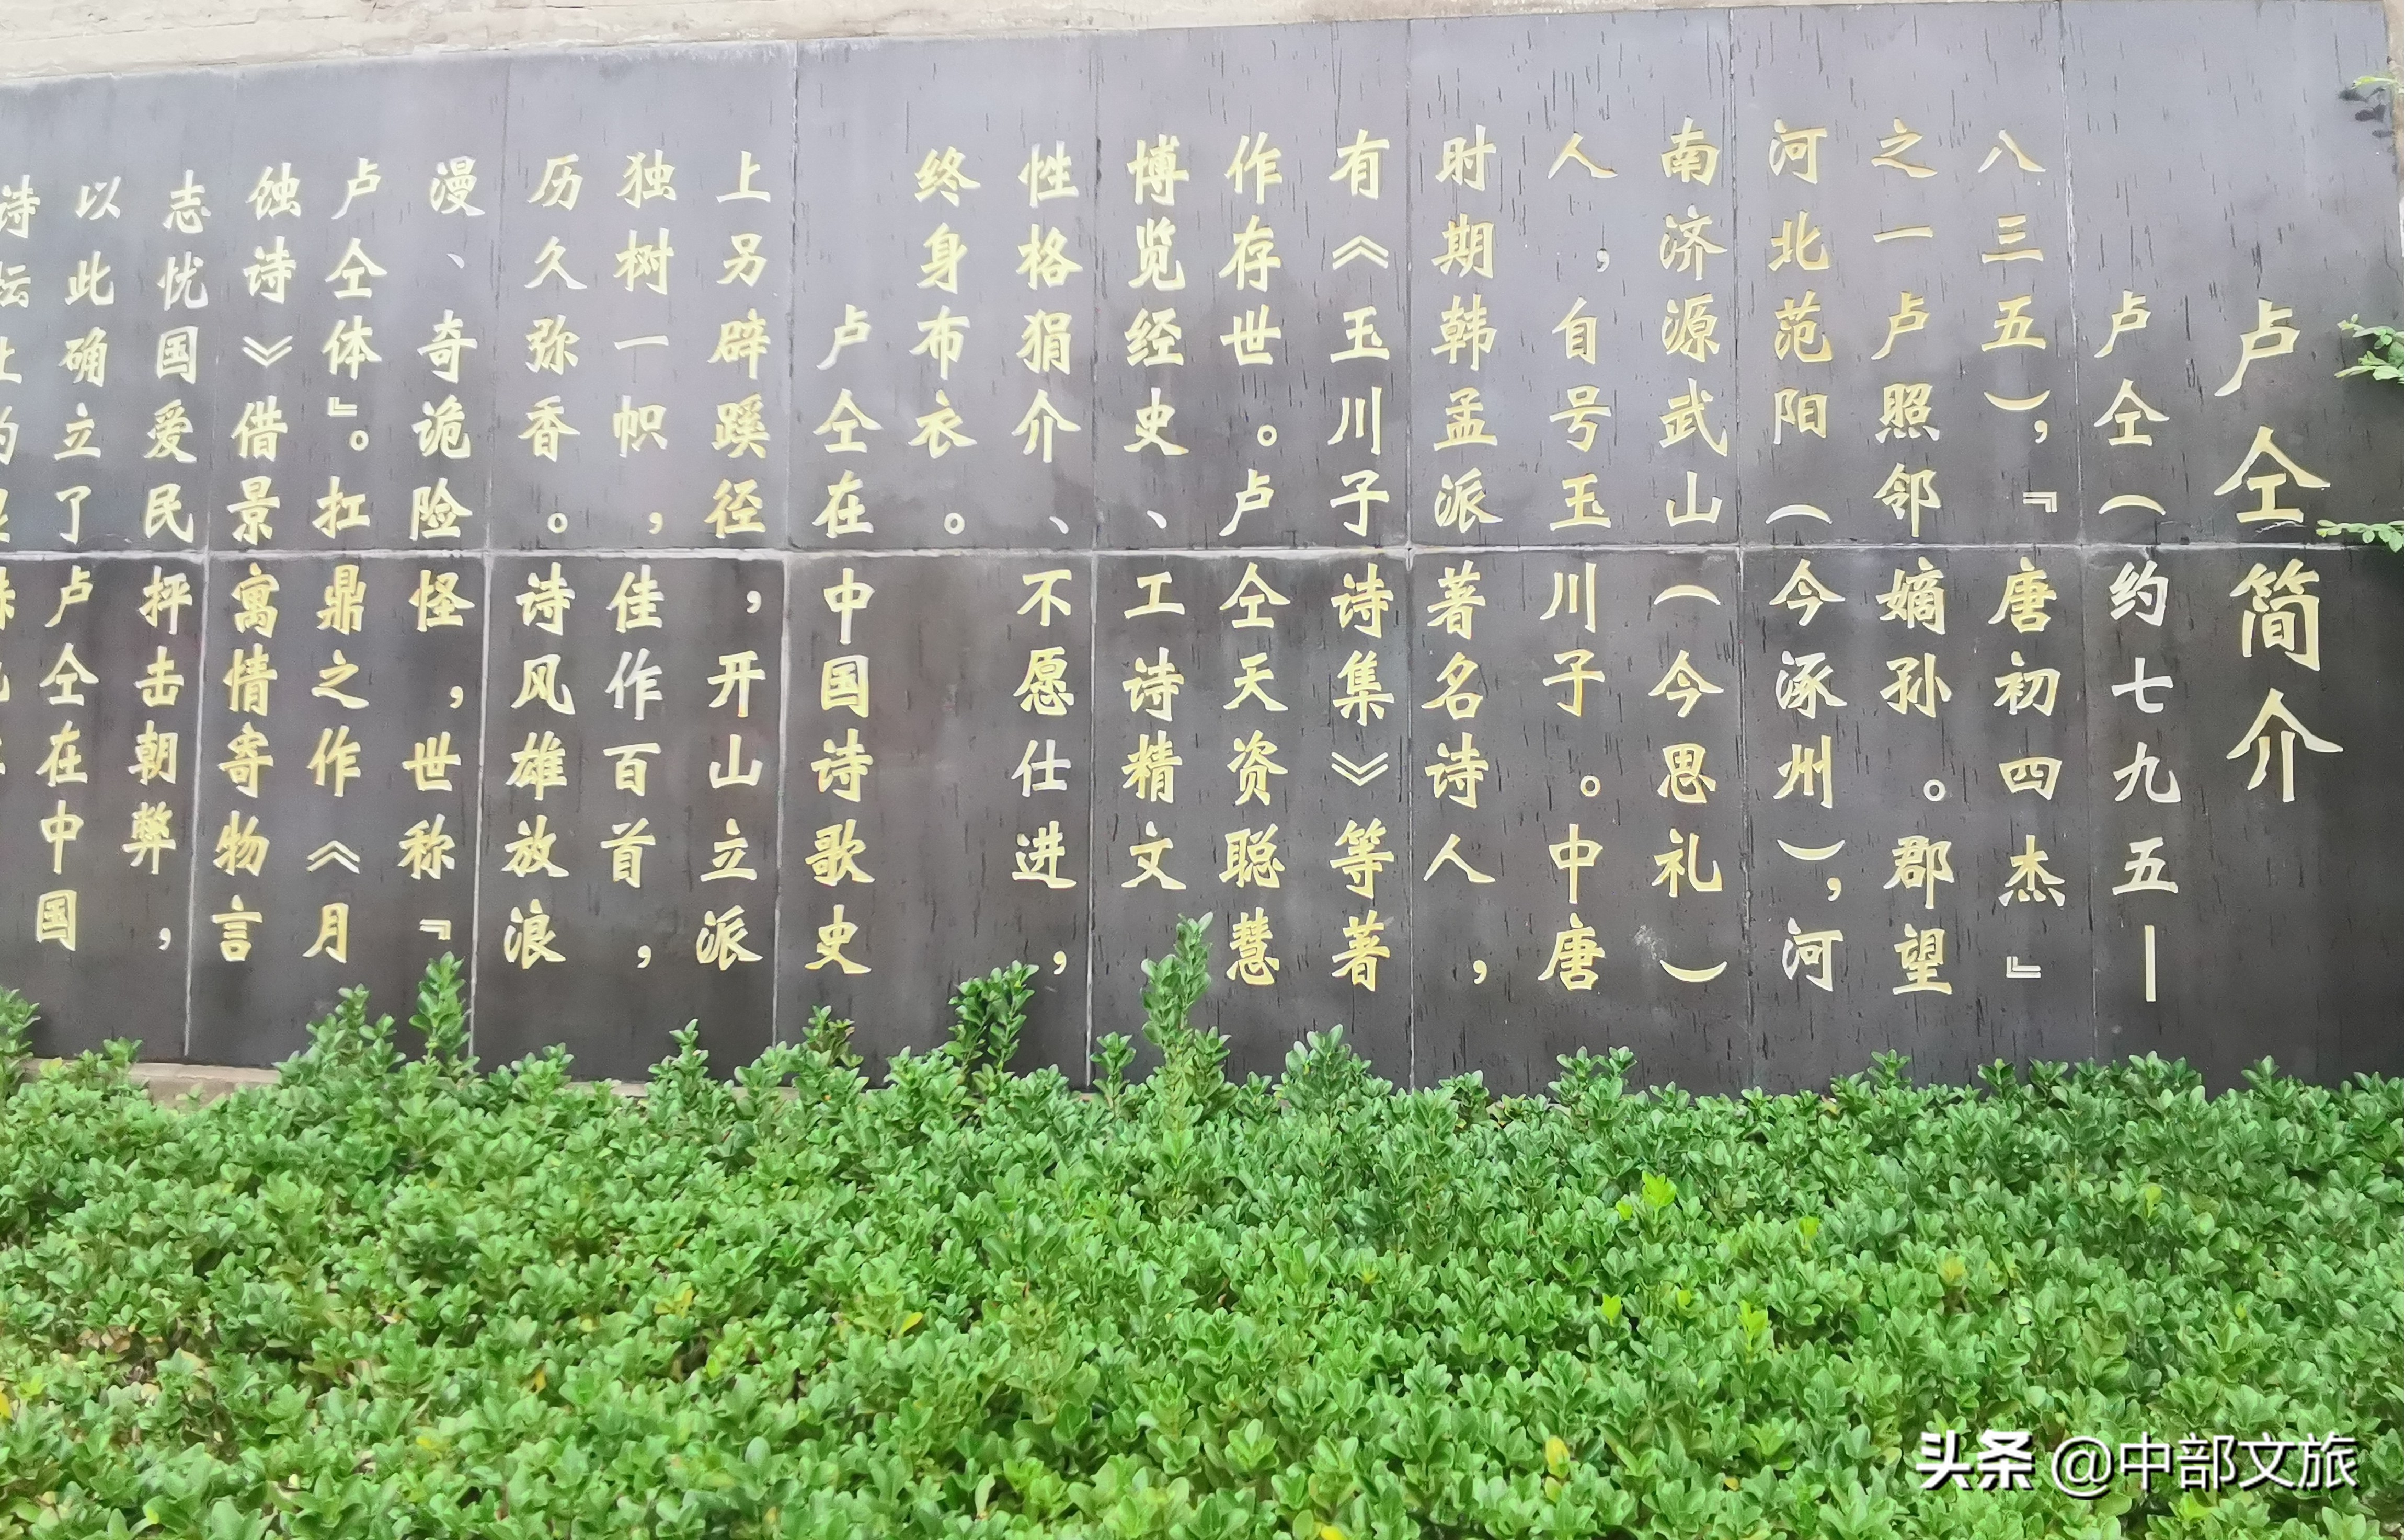 卢仝简介
卢仝（约七九五—
八三五），『唐初四杰』
之一卢照邻嫡孙。郡望
河北范阳（今涿州），河
南济源武山（今思礼）
人，自号玉川子。中唐
时期韩孟派著名诗人，
有《玉川子诗集》等著
作存世。卢仝天资聪慧
博览经史、工诗精文
性格狷介、不愿仕进，
终身布衣。
卢仝在中国诗歌史
上另辟蹊径，开山立派
独树一帜，佳作百首，
历久弥香。诗风雄放浪
漫、奇诡险怪，世称『
卢仝体』。扛鼎之作《月
蚀诗》借景寓情寄物言
志忧国爱民抨击朝弊，
以此确立了卢仝在中国
诗坛
头条 @中部文旅